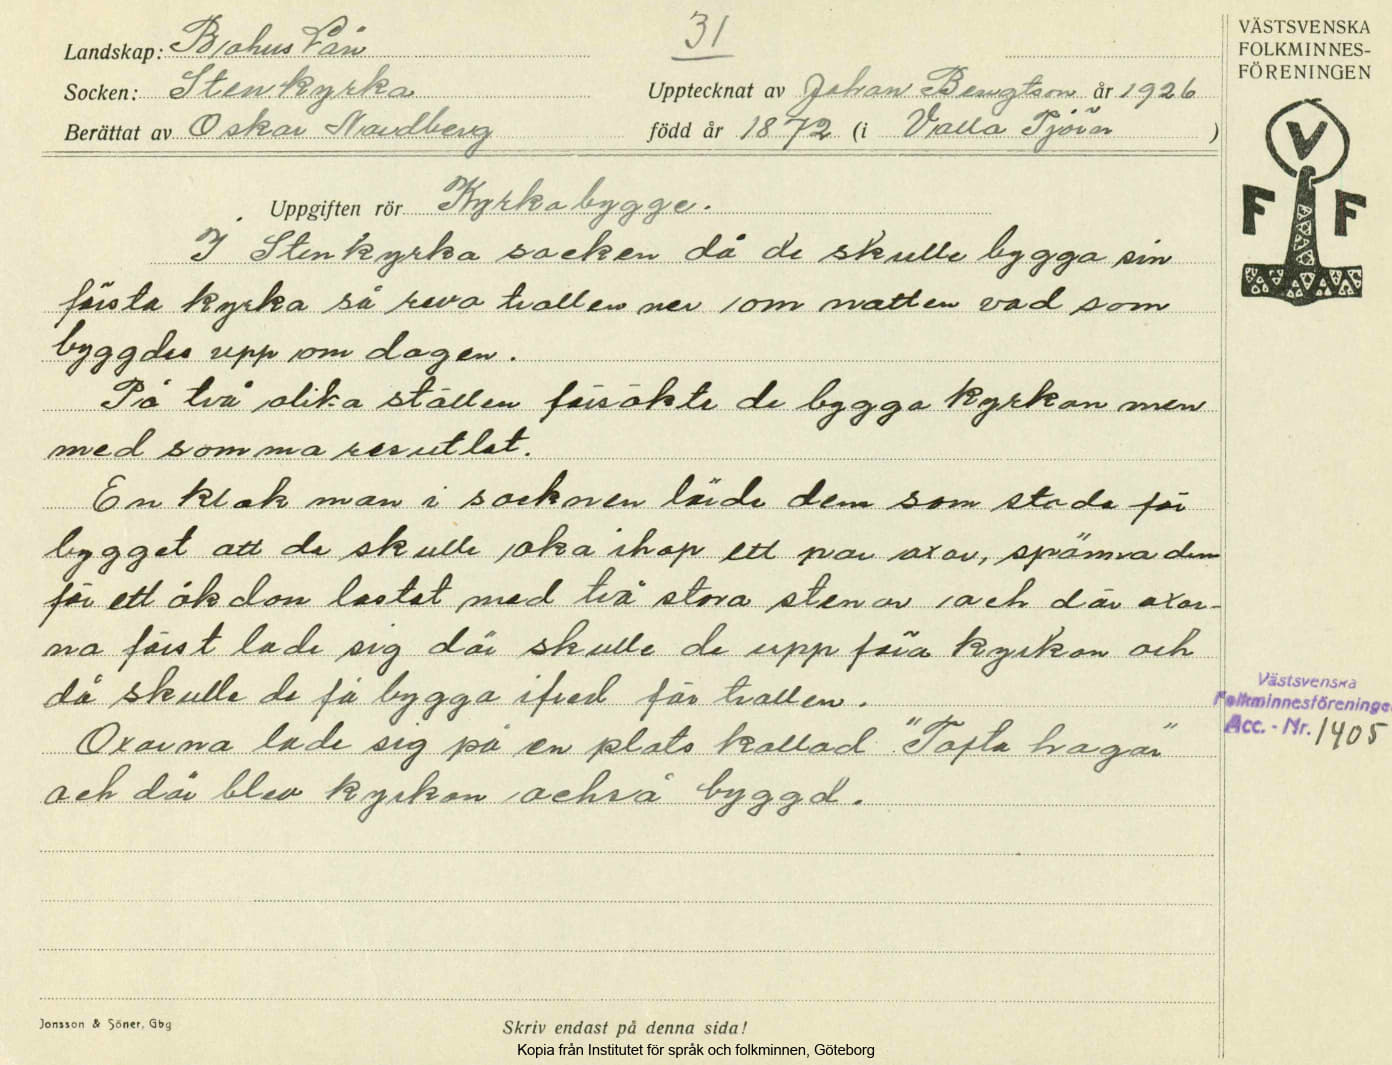 31
VÄSTSVENSKA
FOLKMINNES-
FÖRENINGEN
Landskap: Bohus Län
Socken: Stenkyrka
Upptecknat av Johan Bengtson år 1926
Berättat av Oskar Nordberg
född år 1872 (i Valla Tjörn )
V
F F
Uppgiften rör Kyrkobygge.
I Stenkyrka socken då de skulle bygga sin
första kyrka så revo trollen ner om natten vad som
byggdes upp om dagen.
På två olika ställen försökte de bygga kyrkan men
med somma resutlat.
En klok man i socknen lärde dem som stode för
bygget att de skulle oka ihop ett par oxar, spänna dem
för ett åkdon lastat med två stora stenar och där oxar-
na först lade sig där skulle de uppföra kyrkan och
då skulle de få bygga ifred för trollen.
Oxarna lade sig på en plats kallad "Tofta hagar"
och där blev kyrkan också byggd.
Västsvenska
Folkminnesföreningen
Acc. - Nr. 1405
Jonsson & Söner, Gbg
Skriv endast på denna sida!
Kopia från Institutet för språk och folkminnen, Göteborg